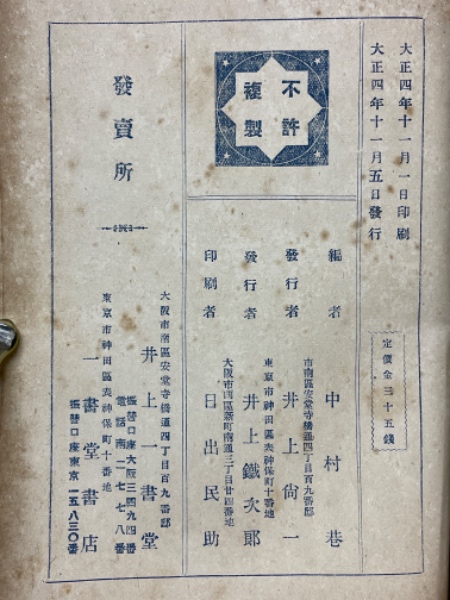 大正四年十一月一日印刷
大正四年十一月五日發行
定價金三十五錢
不許
複製
編者 中村巷
市南區安堂寺橋通四丁目百九番邸
發行者 井上尙一
東京市神田區表神保町十番地
發行者 井上鐵次郎
大阪市南區新町南通三丁目廿四番地
印刷者 日出民助
發賣所
大阪市南區安堂寺橋通四丁目百九番邸
井上一書堂
振替口座大阪三四九四番
電話南二七七八番
東京市神田區表神保町十番地
一書堂書店
振替口座東京一五八三〇番